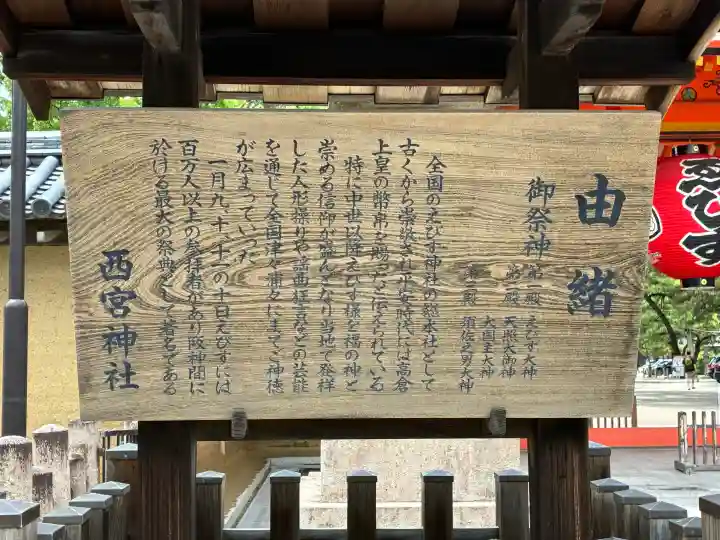 由緒
御祭神
第一殿 えびす大神
第二殿 天照大御神
大国主大神
第三殿 須佐之男大神
全国のえびす神社の総本社として
古くから崇敬され平安時代には高倉
上皇の幣帛を賜ったと伝えられている
特に中世以降えびす様を福の神と
崇める信仰が盛んとなり当地で発祥
した人形操りや謡曲狂言などの芸能
を通じて全国津々浦々にまでご神徳
が広まっていった
一月九、十、十一の十日えびすには
百万人以上の参拝者があり阪神間に
於ける最大の祭典として著名である
西宮神社
ゑびす